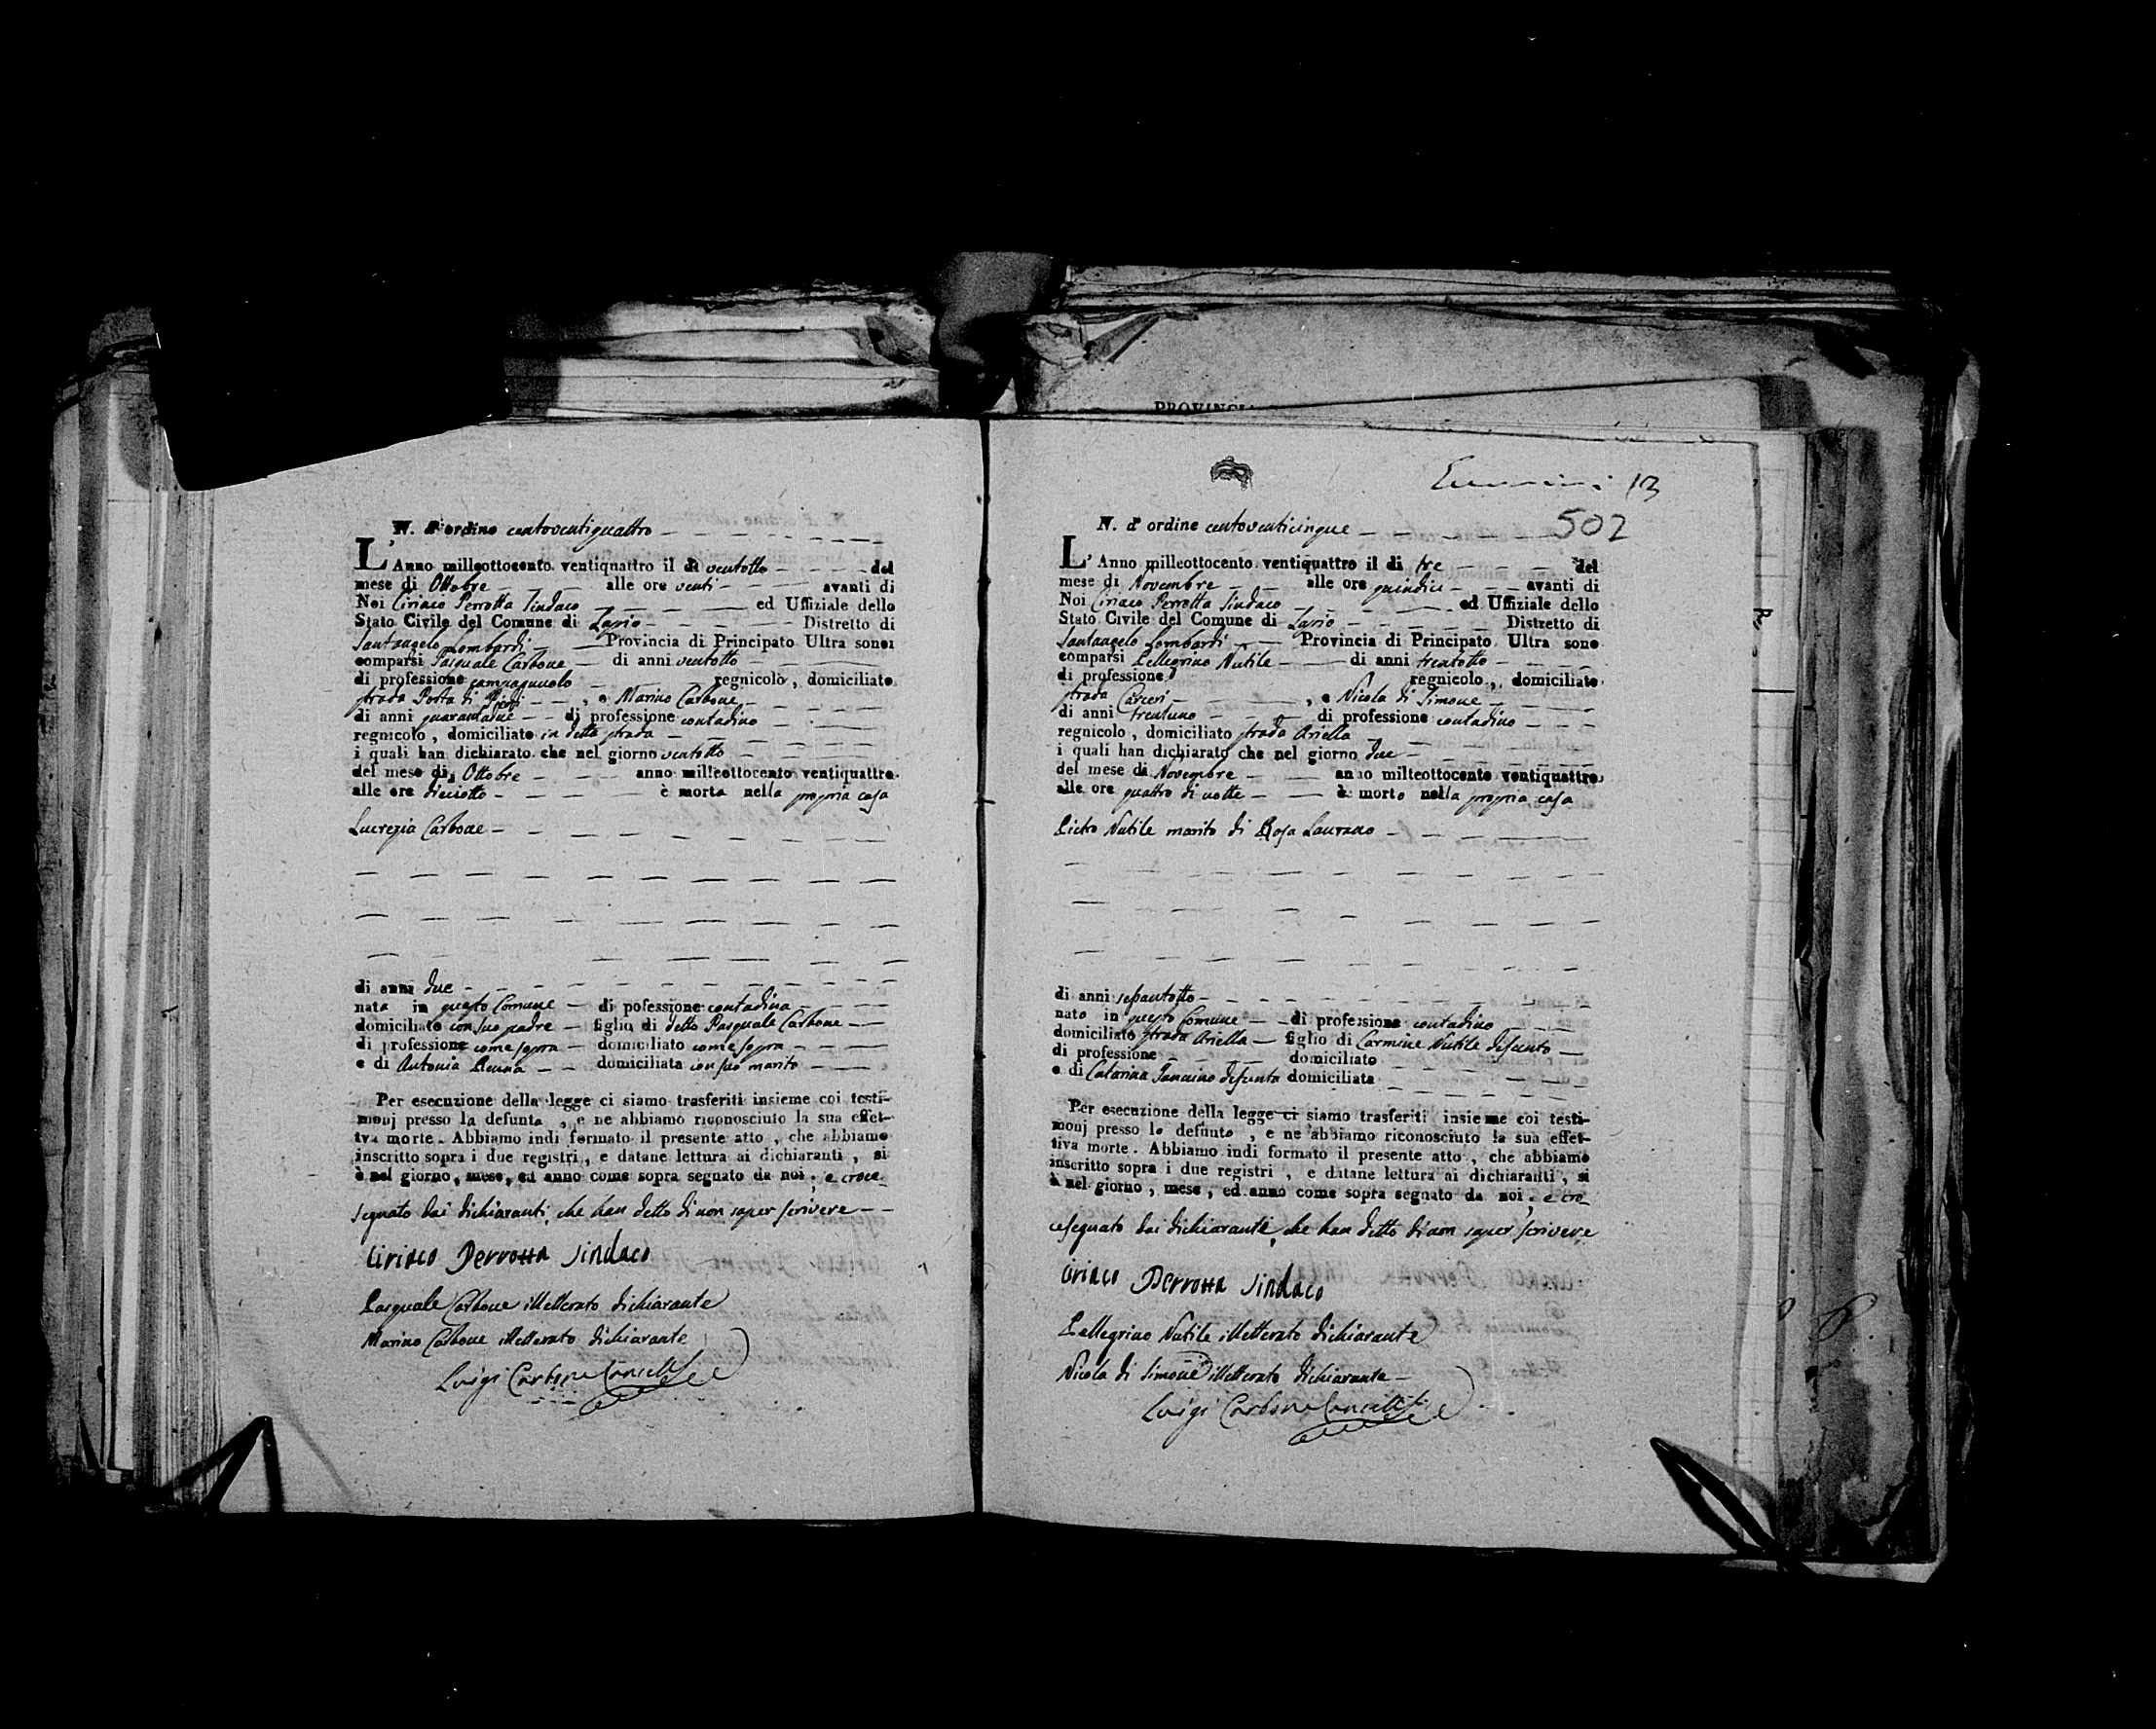 PROVINCI
N. d'ordine centoventiquattro
L'Anno milleottocento ventiquattro il di ventotto del
mese di Ottobre alle ore venti avanti di
Noi Ciriaco Perrotta Sindaco ed Uffiziale dello
Stato Civile del Comune di Lapio Distretto di
Santangelo Lombardi Provincia di Principato Ultra sono
comparsi Pasquale Carbone di anni ventotto
di professione campagnuolo regnicolo, domiciliato
strada Porta di Piedi, e Marino Carbone
di anni quarantadue di professione contadino
regnicolo, domiciliato in detta strada
i quali han dichiarato che nel giorno ventotto
del mese di Ottobre anno milleottocento ventiquattro
alle ore dieciotto è morta nella propria casa
Lucrezia Carbone
di anni due
nata in questo Comune di pofessione contadina
domiciliato con suo padre figlia di detto Pasquale Carbone
di professione come sopra domiciliato come sopra
e di Antonia domiciliata con suo marito
Per esecuzione della legge ci siamo trasferiti insieme coi testi-
monj presso la defunta, e ne abbiamo riconosciuto la sua effet-
tiva morte. Abbiamo indi formato il presente atto, che abbiamo
inscritto sopra i due registri, e datane lettura ai dichiaranti, si
è nel giorno, mese, ed anno come sopra segnato da noi, e croce-
segnato dai dichiaranti, che han detto di non saper scrivere
Ciriaco Perrotta Sindaco
Pasquale Carbone illetterato dichiarante
Marino Carbone illetterato dichiarante
Luigi Carbone
13
502
N. d'ordine centoventicinque
L'Anno milleottocento ventiquattro il di tre del
mese di Novembre alle ore quindici avanti di
Noi Ciriaco Perrotta Sindaco ed Uffiziale dello
Stato Civile del Comune di Lapio Distretto di
Santangelo Lombardi Provincia di Principato Ultra sono
comparsi Pellegrino Nutile di anni trentotto
di professione regnicolo, domiciliato
strada Carceri, e Nicola di Simone
di anni trentuno di professione contadino
regnicolo, domiciliato strada Ariella
i quali han dichiarato che nel giorno due
del mese di Novembre anno milleottocento ventiquattro
alle ore quattro di notte è morto nella propria casa
Pietro Nutile marito di Rosa Laurano
di anni settantotto
nato in questo Comune di professione contadino
domiciliato strada Ariella figlio di Carmine Nutile defunto
di professione domiciliato
e di Catarina defunta domiciliata
Per esecuzione della legge ci siamo trasferiti insieme coi testi-
monj presso lo defunto, e ne abbiamo riconosciuto la sua effet-
tiva morte. Abbiamo indi formato il presente atto, che abbiamo
inscritto sopra i due registri, e datane lettura ai dichiaranti, si
è nel giorno, mese, ed anno come sopra segnato da noi, e cro-
cesegnato dai dichiaranti, che han detto di non saper scrivere
Ciriaco Perrotta Sindaco
Pellegrino Nutile illetterato dichiarante
Nicola di Simone illetterato dichiarante
Luigi Carbone